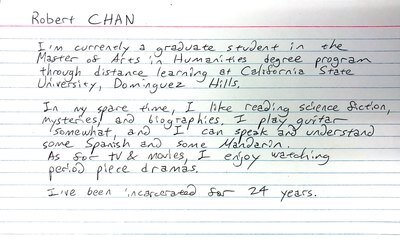 Robert CHAN
I'm currently a graduate student in the
Master of Arts in Humanities degree program
through distance learning at California State
University, Dominguez Hills.
In my spare time, I like reading science fiction,
mysteries, and biographies. I play guitar
somewhat, and I can speak and understand
some Spanish and some Mandarin.
As for TV & movies, I enjoy watching
period piece dramas.
I've been incarcerated for 24 years.